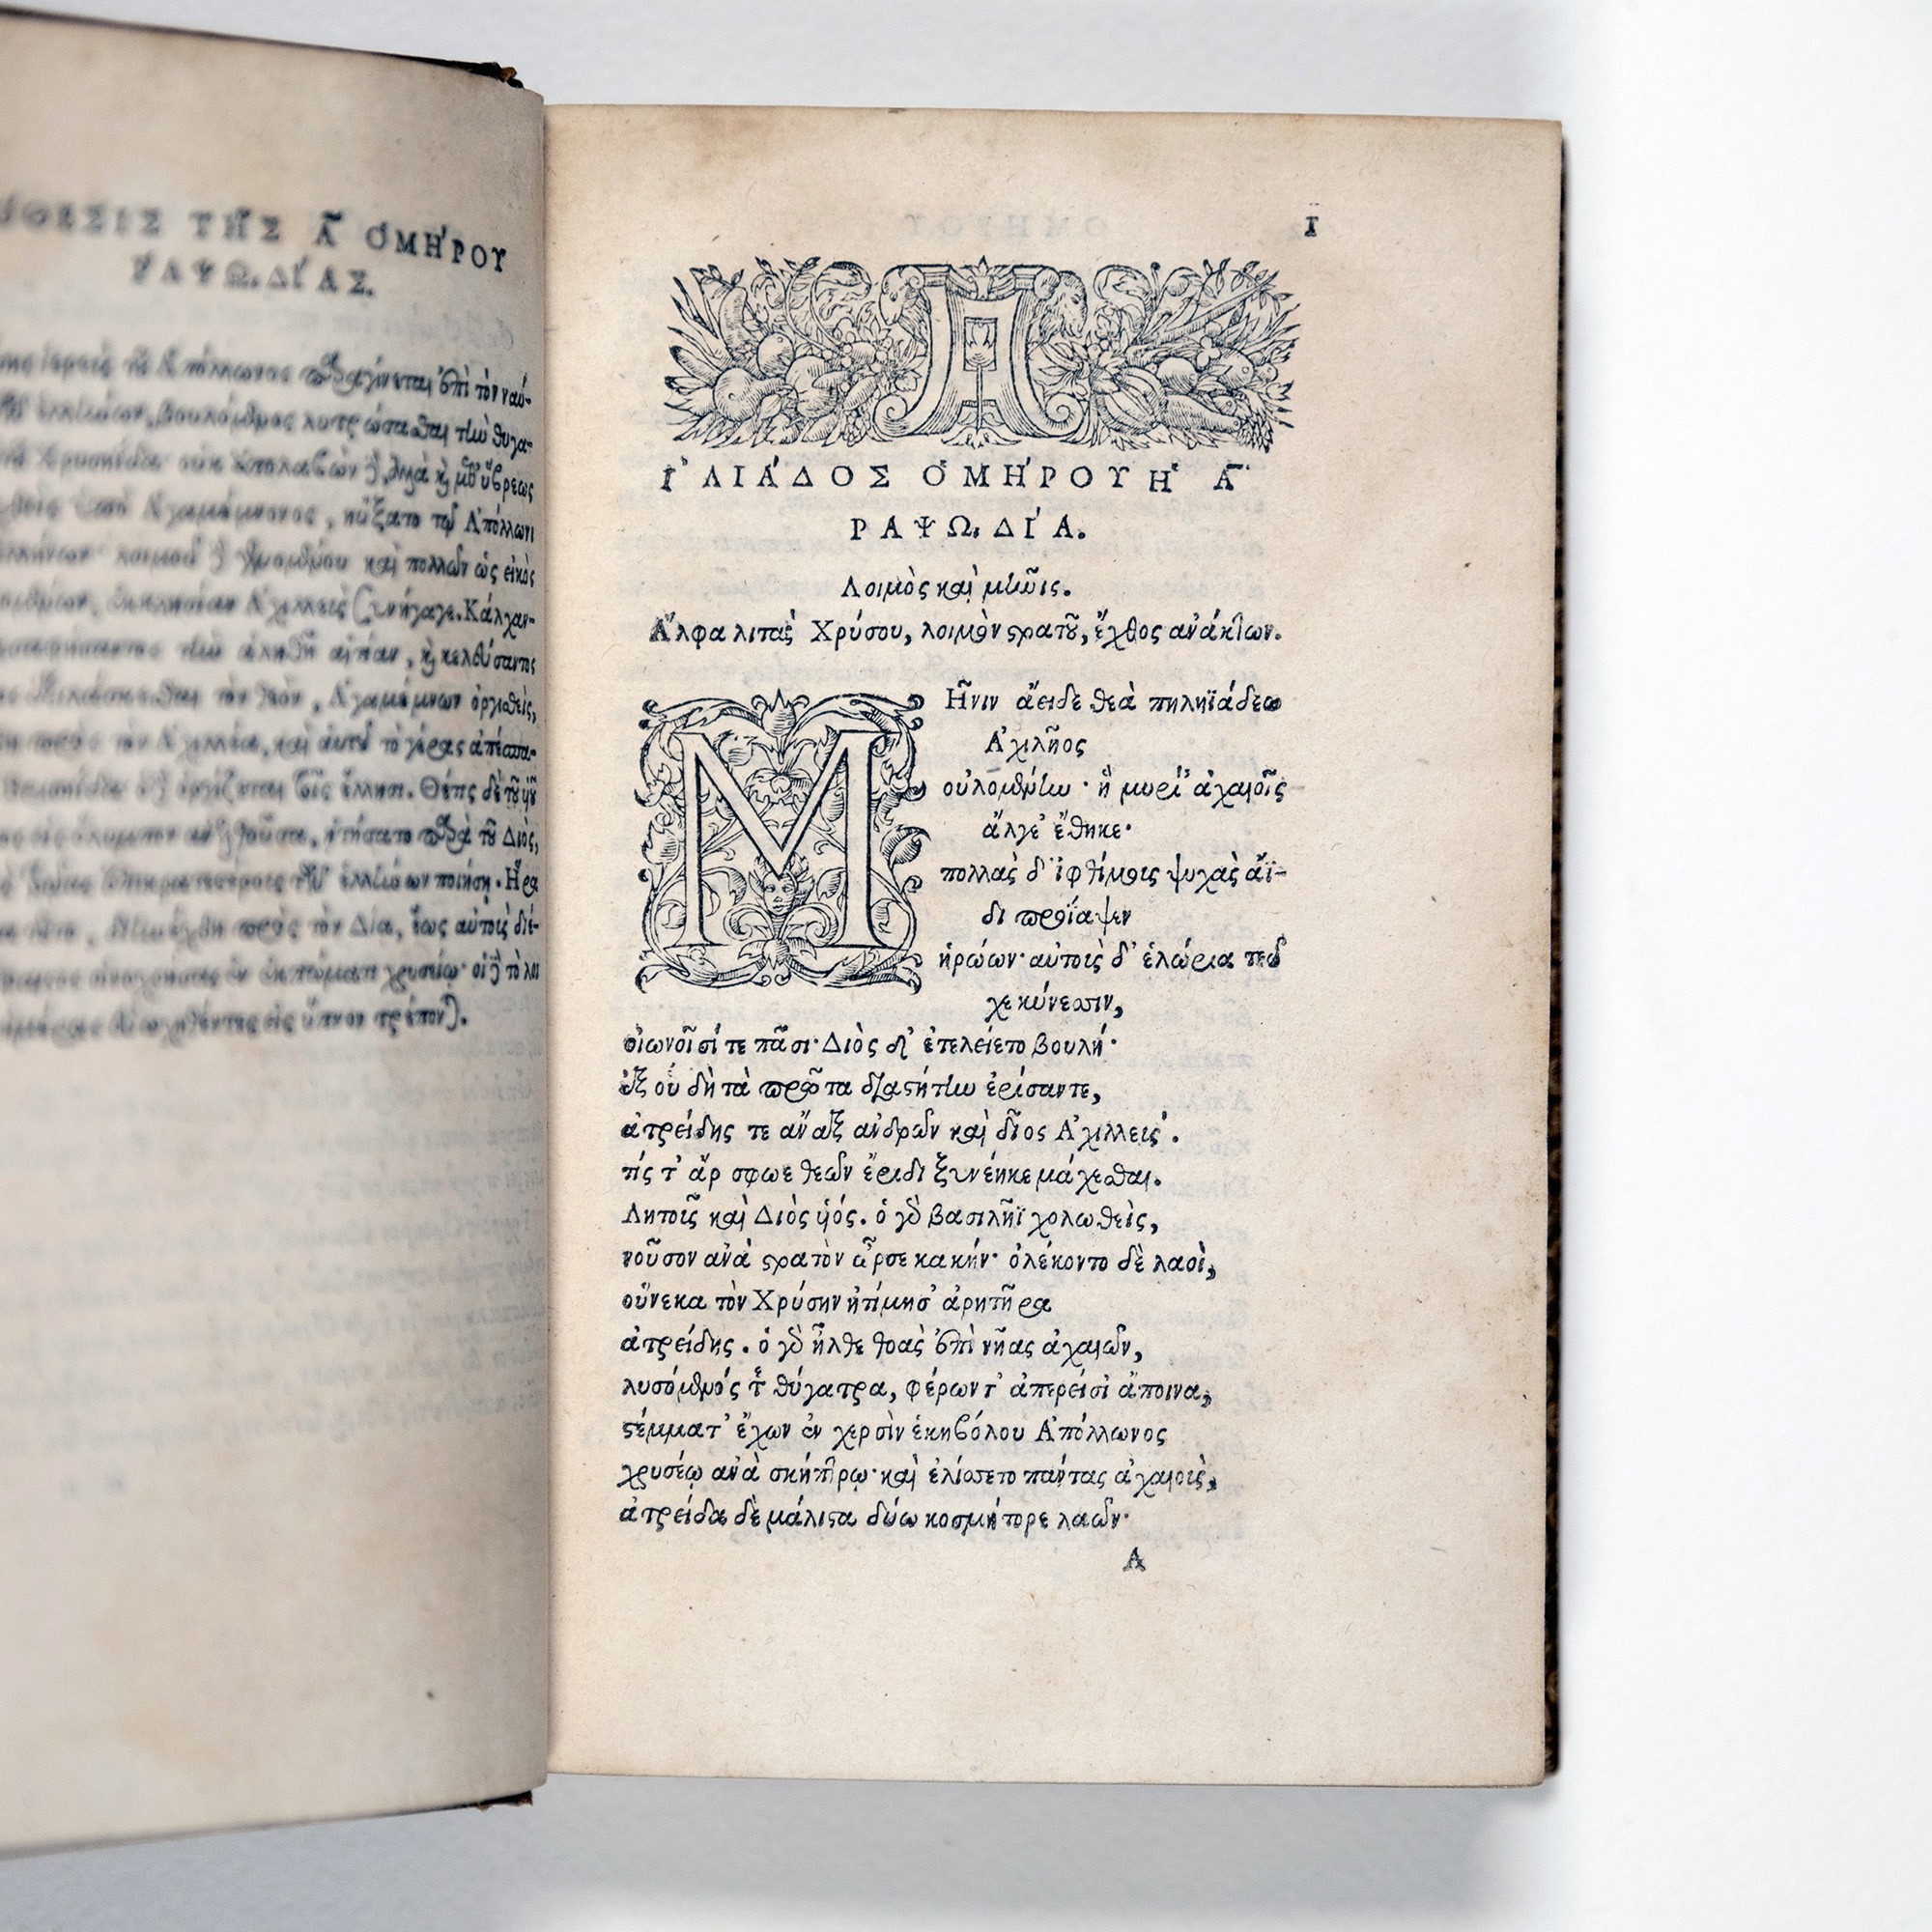 ΘΕΣΙΣ ΤΗΣ Α ΟΜΗ΄ΡΟΥ
ΡΑΨΩΔΙ΄ΑΣ.
Ἀπόλλωνος παραγίνεται ἐπὶ τὸν ναύ-
βουλόμενος λυτρώσασθαι τὴν θυγα-
οὐκ ἀπολαβὼν δὲ, ἀλλὰ καὶ μεθ' ὕβρεως
ὑπὸ Ἀγαμέμνονος, ηὔξατο τῷ Ἀπόλλωνι
λοιμοῦ δὲ γενομένου καὶ πολλῶν ὡς εἰκὸς
ἐκκλησίαν Ἀχιλλεὺς συνήγαγε. Κάλχαν-
τὴν ἀληθῆ αἰτίαν, καὶ κελεύσαντος
τὸν θεὸν, Ἀγαμέμνων ὀργισθεὶς,
πρὸς τὸν Ἀχιλλέα, καὶ αὐτοῦ τὸ γέρας ἀπέσπα-
ὀργίζεται τοῖς ἕλλησι. Θέτις δὲ τοῦ υἱοῦ
εἰς ὄλυμπον ἀνελθοῦσα, ᾐτήσατο παρὰ τοῦ Διὸς,
ἐπικρατεστέρους τῶν ἑλλήνων ποιήσῃ. Ἥρα
πρὸς τὸν Δία, ἕως αὐτοὺς διέ-
οἰνοχοήσας ἐν ἐκπώματι χρυσέῳ· οἱ δὲ τὸ λοι
εἰς ὕπνον τρέπον).
I
Α
Ἰ ΛΙΑ΄ΔΟΣ ὉΜΗ΄ΡΟΥ Ἡ Ἀ
ΡΑΨΩ,ΔΙ΄Α.
Λοιμὸς καὶ μῆνις.
Ἄλφα λιτὰς Χρύσου, λοιμὸν στρατοῦ, ἔχθος ἀνάκτων.
ΜΗ͂νιν ἄειδε θεὰ πηληϊάδεω
Ἀχιλῆος
οὐλομένην· ἣ μυρί' ἀχαιοῖς
ἄλγε' ἔθηκε·
πολλὰς δ' ἰφθίμους ψυχὰς ἄϊ-
δι προΐαψεν
ἡρώων· αὐτοὺς δ' ἑλώρια τεῦ
χε κύνεσσιν,
οἰωνοῖσί τε πᾶσι· Διὸς δ' ἐτελείετο βουλή·
ἐξ οὗ δὴ τὰ πρῶτα διαστήτην ἐρίσαντε,
ἀτρείδης τε ἄναξ ἀνδρῶν καὶ δῖος Ἀχιλλεύς.
τίς τ' ἄρ σφωε θεῶν ἔριδι ξυνέηκε μάχεσθαι.
Λητοῦς καὶ Διὸς υἱός. ὁ γὰρ βασιλῆϊ χολωθεὶς,
νοῦσον ἀνὰ στρατὸν ὦρσε κακήν· ὀλέκοντο δὲ λαοὶ,
οὕνεκα τὸν Χρύσην ἠτίμησ' ἀρητῆρα
ἀτρείδης. ὁ γὰρ ἦλθε θοὰς ἐπὶ νῆας ἀχαιῶν,
λυσόμενός τε θύγατρα, φέρων τ' ἀπερείσι' ἄποινα,
στέμματ' ἔχων ἐν χερσὶν ἑκηβόλου Ἀπόλλωνος
χρυσέῳ ἀνὰ σκήπτρῳ· καὶ ἐλίσσετο πάντας ἀχαιοὺς,
ἀτρείδα δὲ μάλιστα δύω κοσμήτορε λαῶν·
A